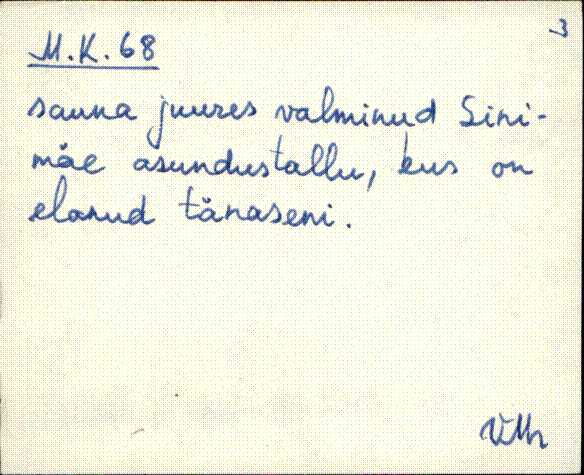 3
M.K.68
sauna juures valminud Sini-
mäe asundustallu, kus on
elanud tänaseni.